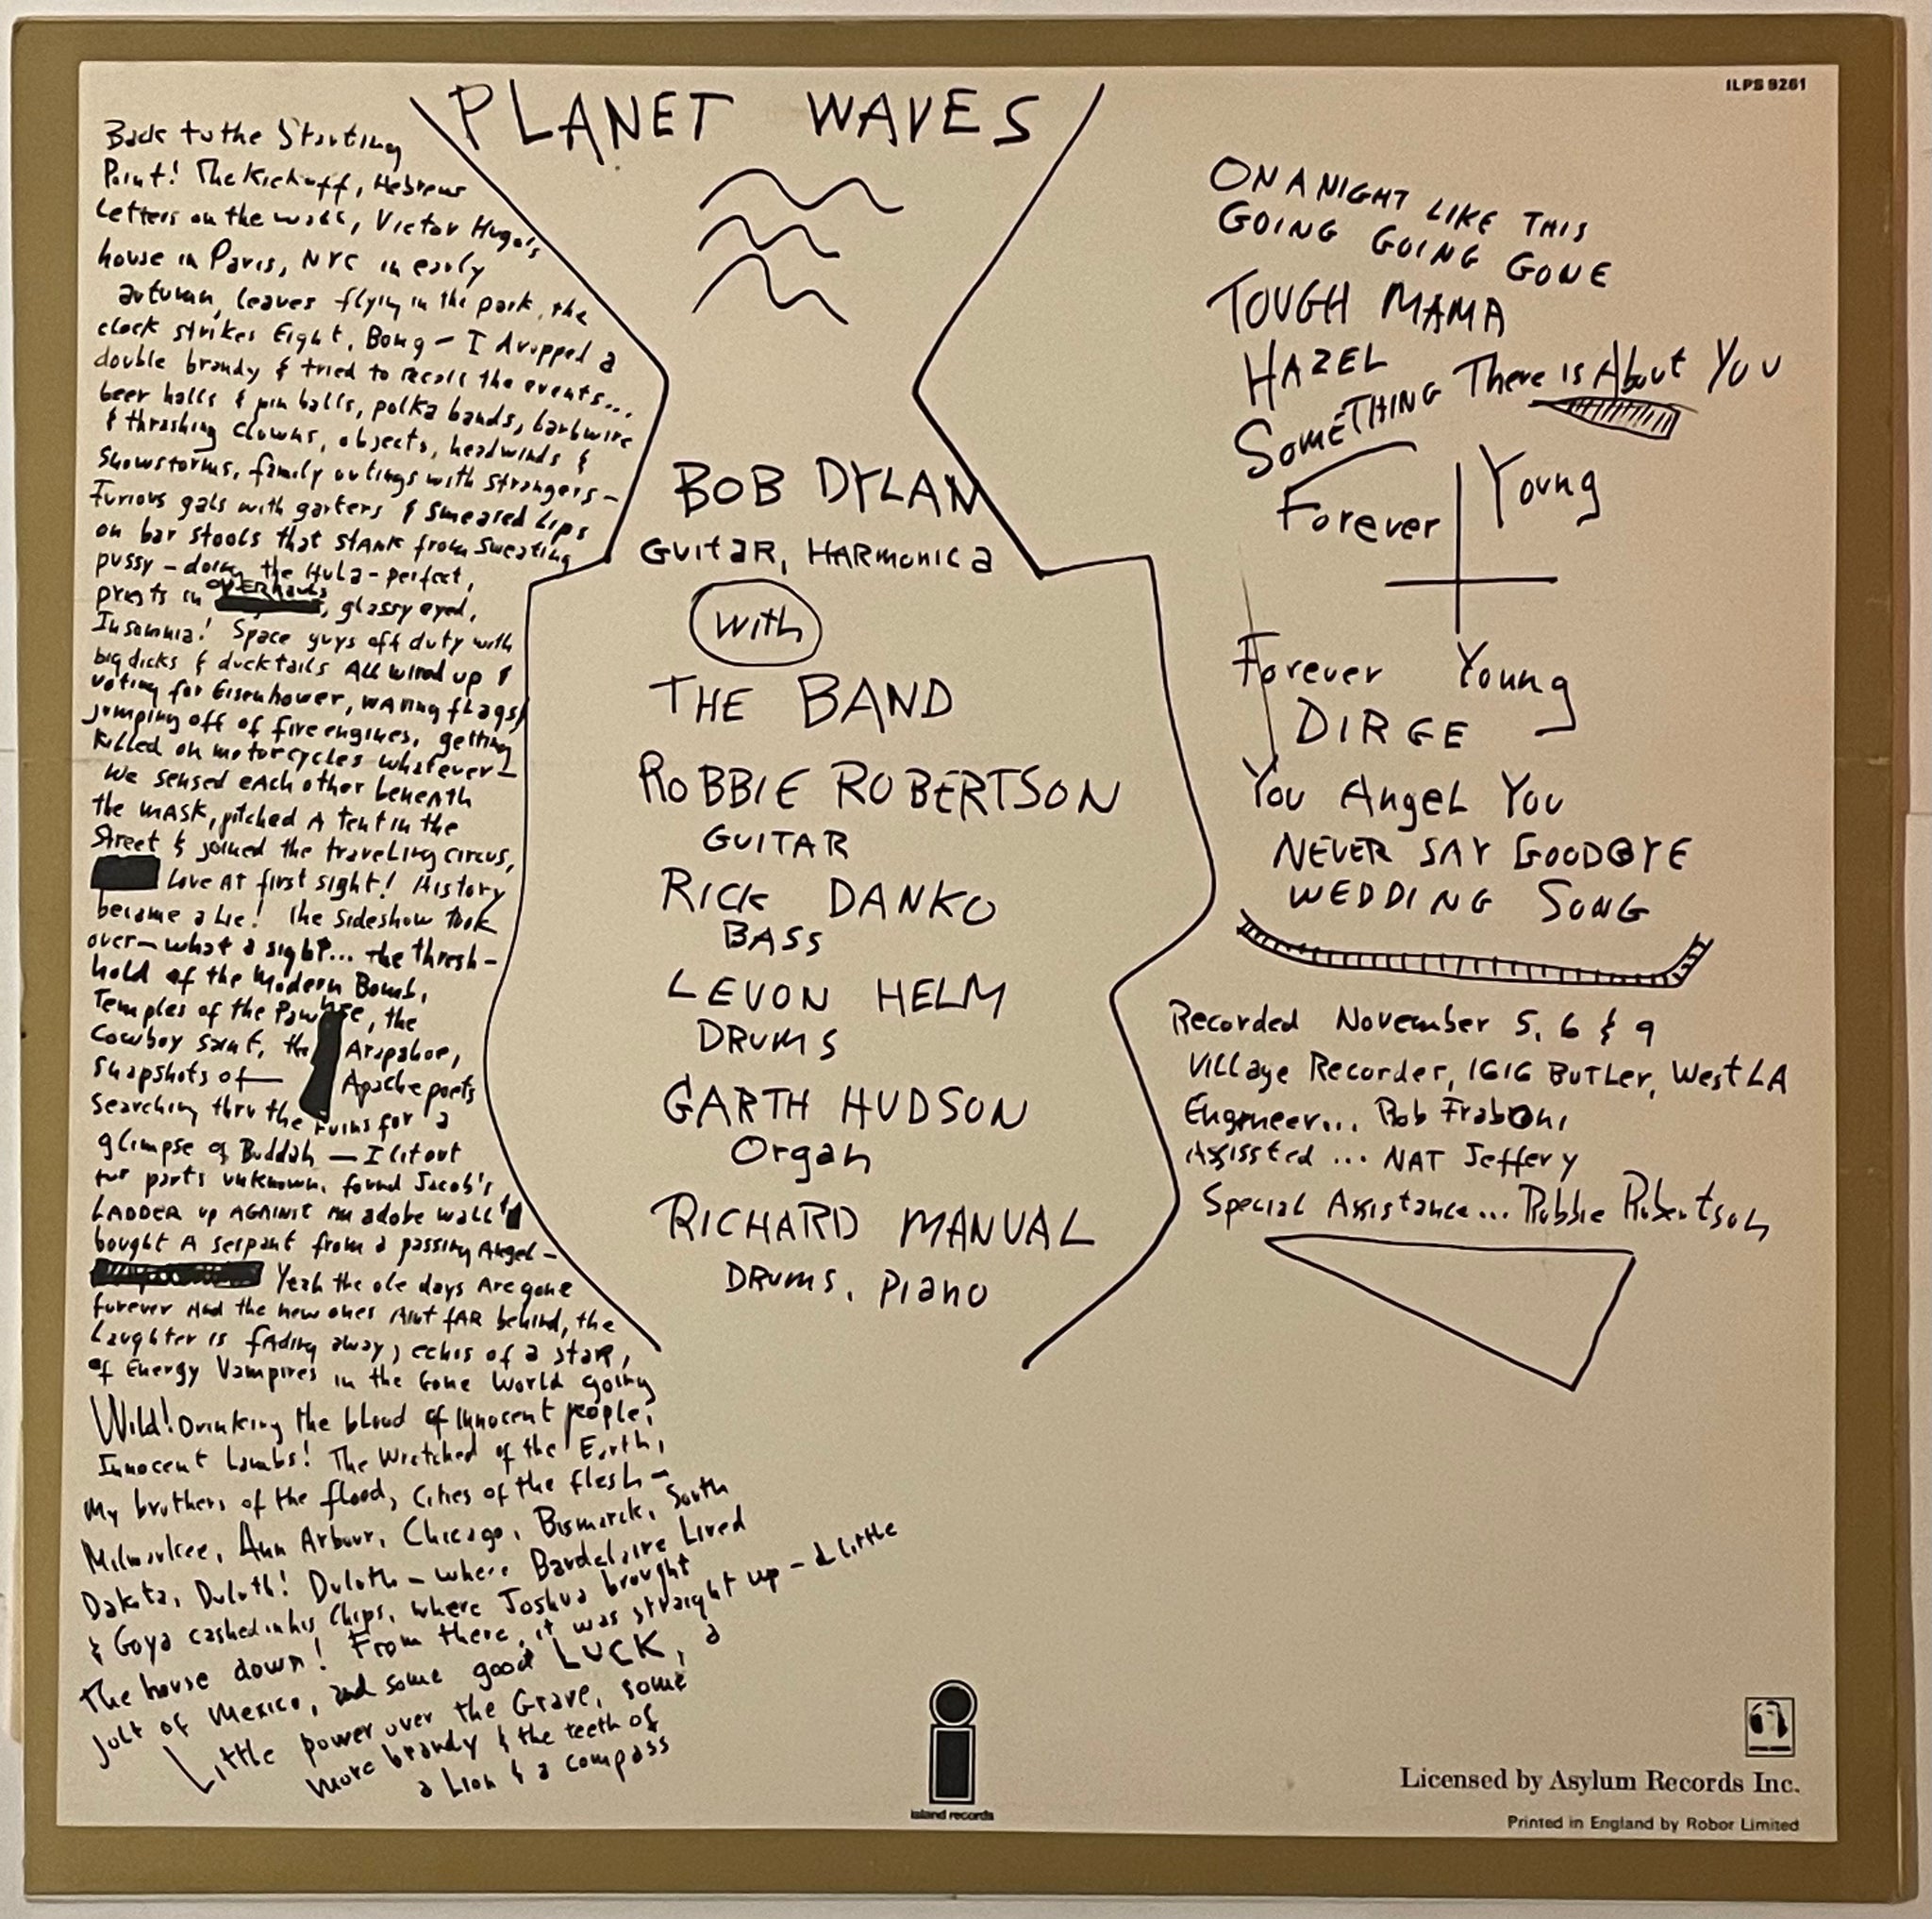 PLANET WAVES
ILPS 9261
Back to the Starting
Point! The Kickoff, Hebrew
Letters on the wall, Victor Hugo's
house in Paris, NYC in early
autumn, leaves flying in the park, the
clock strikes Eight, Bong - I dropped a
double brandy & tried to recall the events...
beer halls & pin balls, polka bands, barbwire
& thrashing clowns, objects, headwinds &
Snowstorms, family outings with strangers -
Furious gals with garters & smeared Lips
on bar stools that stank from sweating
pussy - doing the Hula - perfect,
priests in OVERhauls, glassy eyed,
Insomnia! Space guys off duty with
big dicks & ducktails All wired up &
voting for Eisenhower, waving flags,
jumping off of fire engines, getting
killed on motorcycles whatever -
We sensed each other beneath
the mask, pitched A tent in the
Street & joined the traveling circus,
Love At first sight! History
became a Lie! The sideshow took
over - what a sight... the thresh-
hold of the Modern Bomb,
Temples of the Pawnee, the
Cowboy saint, the Arapahoe,
Snapshots of - Apache poets
Searching thru the ruins for a
glimpse of Buddah - I lit out
for parts unknown, found Jacob's
LADDER up AGAINST An adobe wall &
bought A serpant from a passing Angel -
Yeah the ole days Are gone
forever And the new ones Aint fAR behind, the
Laughter is fAding away, echos of a star,
of Energy Vampires in the Gone World going
Wild! Drinking the blood of innocent people,
Innocent Lambs! The Wretched of the Earth,
My brothers of the flood, Cities of the flesh -
Milwaukee, Ann Arbour, Chicago, Bismarck, South
Dakota, Duluth! Duluth - where Baudelaire Lived
& Goya cashed in his Chips, where Joshua brought
The house down! From there, it was straight up - a Little
jolt of Mexico, and some good LUCK, a
Little power over the Grave, some
more brandy & the teeth of
a Lion & a compass
BOB DYLAN
GUITAR, HARMONICA
With
THE BAND
ROBBIE ROBERTSON
GUITAR
RICK DANKO
BASS
LEVON HELM
DRUMS
GARTH HUDSON
Organ
RICHARD MANUAL
DRUMS, PIANO
ON A NIGHT LIKE THIS
GOING GOING GONE
TOUGH MAMA
HAZEL
SOMETHING There is About You
Forever Young
Forever Young
DIRGE
You Angel You
NEVER SAY GOODBYE
WEDDING SONG
Recorded November 5, 6 & 9
Village Recorder, 1616 Butler, West LA
Engineer... Rob Fraboni
Assissted ... NAT Jeffery
Special Assistance... Robbie Robertson
island records
Licensed by Asylum Records Inc.
Printed in England by Robor Limited